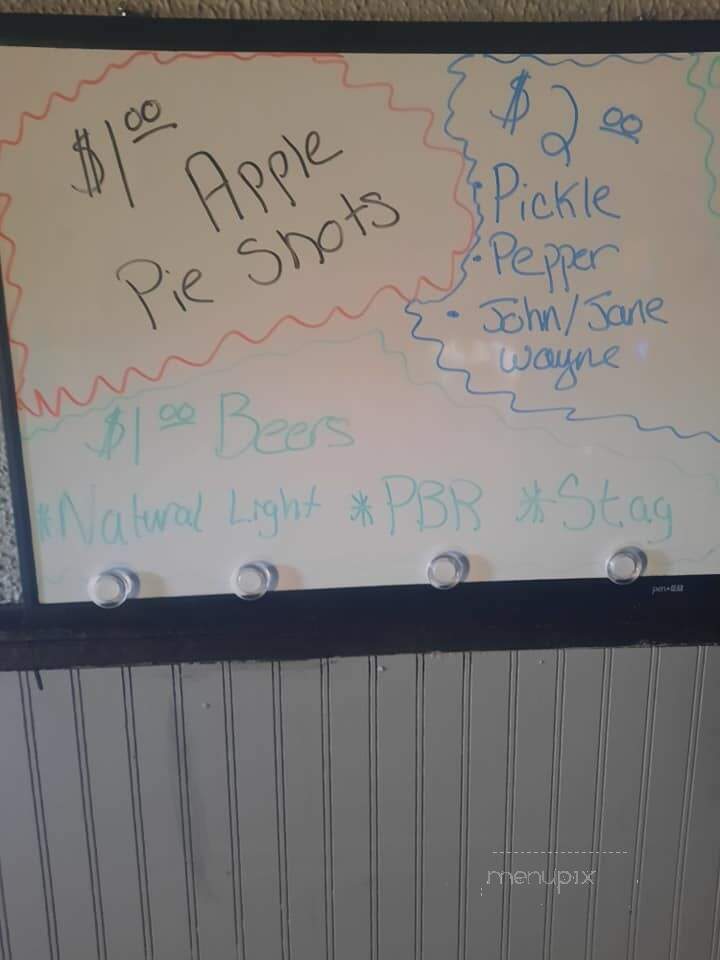 $1.00
Apple
Pie Shots
$2.00
• Pickle
• Pepper
• John/Jane
wayne
$1.00 Beers
*Natural Light *PBR *Stag
menupix